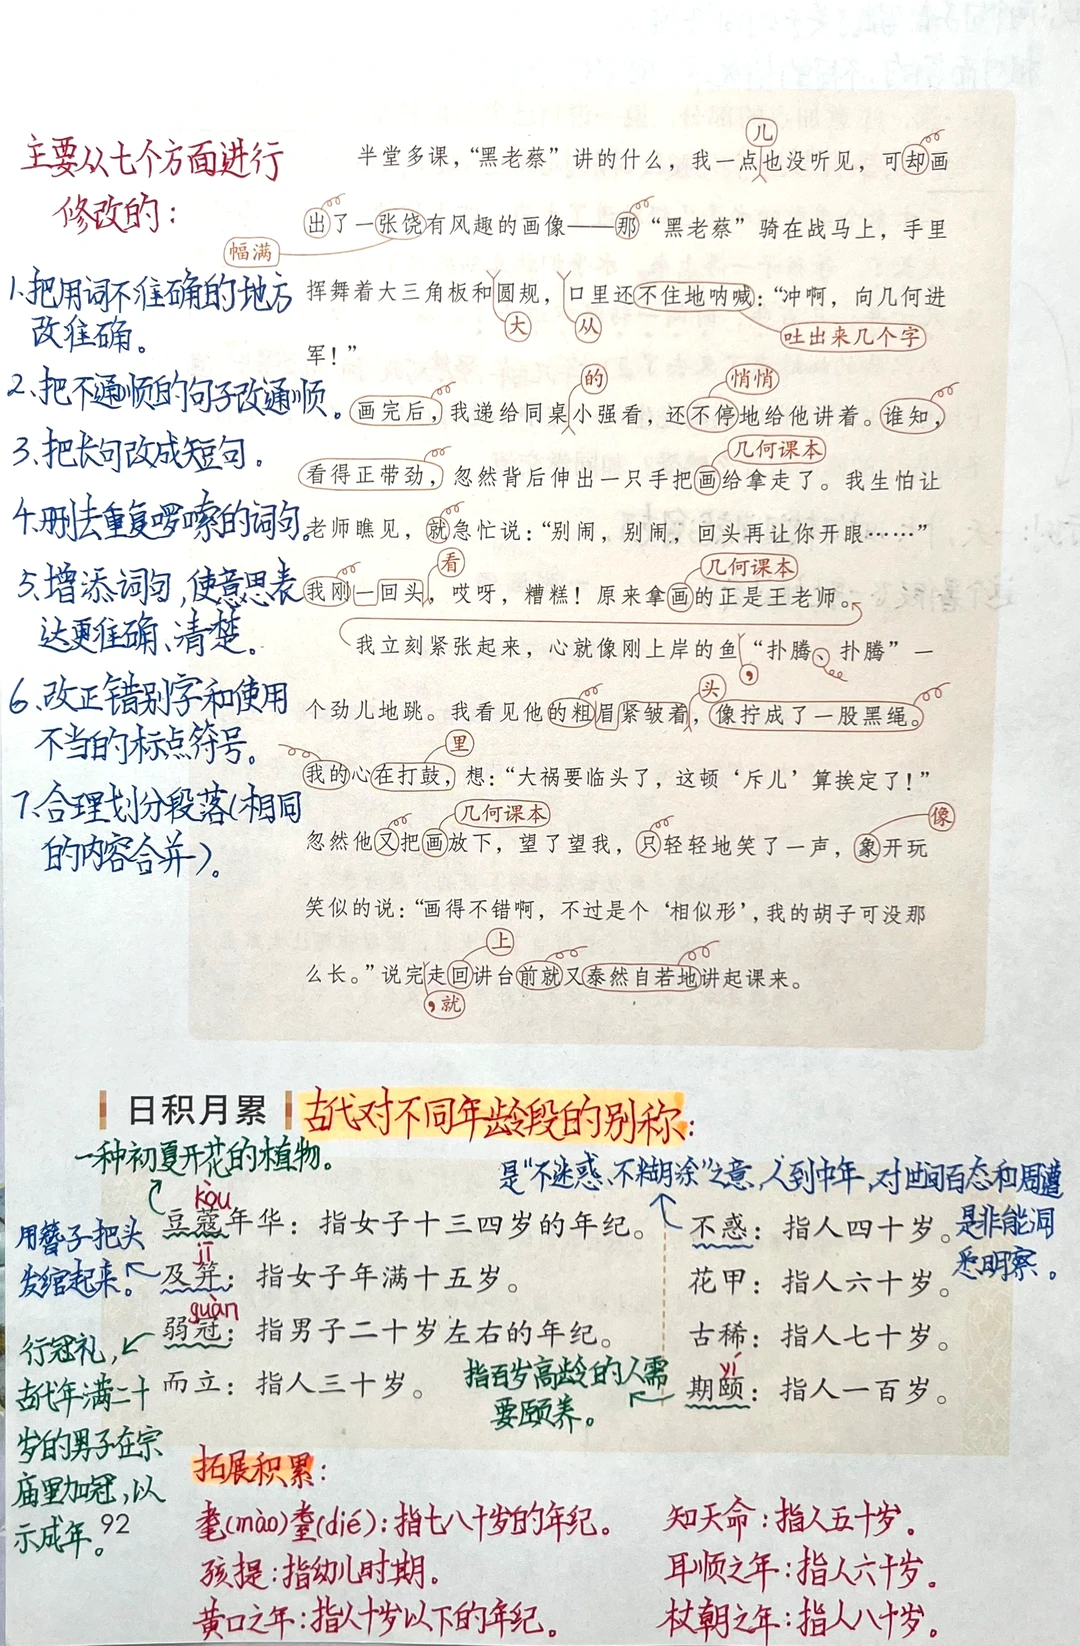 主要从七个方面进行
修改的：
1、把用词不准确的地方
改准确。
2、把不通顺的句子改通顺。
3、把长句改成短句。
4、删去重复啰嗦的词句。
5、增添词句，使意思表
达更准确、清楚。
6、改正错别字和使用
不当的标点符号。
7、合理划分段落（相同
的内容合并）。
儿
半堂多课，“黑老蔡”讲的什么，我一点也没听见，可却画
出了一张饶有风趣的画像——那“黑老蔡”骑在战马上，手里
幅满
挥舞着大三角板和圆规，口里还不住地呐喊：“冲啊，向几何进
大
从
吐出来几个字
军！”
的
悄悄
画完后，我递给同桌小强看，还不停地给他讲着。谁知，
几何课本
看得正带劲，忽然背后伸出一只手把画给拿走了。我生怕让
老师瞧见，就急忙说：“别闹，别闹，回头再让你开眼……”
看
几何课本
我刚一回头，哎呀，糟糕！原来拿画的正是王老师。
我立刻紧张起来，心就像刚上岸的鱼“扑腾、扑腾”一
，
头
个劲儿地跳。我看见他的粗眉紧皱着，像拧成了一股黑绳。
里
我的心在打鼓，想：“大祸要临头了，这顿‘斥儿’算挨定了！”
几何课本
像
忽然他又把画放下，望了望我，只轻轻地笑了一声，象开玩
笑似的说：“画得不错啊，不过是个‘相似形’，我的胡子可没那
上
么长。”说完走回讲台前就又泰然自若地讲起课来。
，就
日积月累
古代对不同年龄段的别称：
一种初夏开花的植物。
是“不迷惑、不糊涂”之意，人到中年，对世间百态和周遭
是非能洞
悉明察。
kòu
豆蔻年华：指女子十三四岁的年纪。
不惑：指人四十岁。
用簪子把头
发绾起来。
jī
及笄：指女子年满十五岁。
花甲：指人六十岁。
guàn
弱冠：指男子二十岁左右的年纪。
古稀：指人七十岁。
行冠礼，
古代年满二十
岁的男子在宗
庙里加冠，以
示成年。
而立：指人三十岁。
指百岁高龄的人需
要颐养。
yí
期颐：指人一百岁。
拓展积累：
耄(mào)耋(dié)：指七八十岁的年纪。
知天命：指人五十岁。
孩提：指幼儿时期。
耳顺之年：指人六十岁。
黄口之年：指人十岁以下的年纪。
杖朝之年：指人八十岁。
92